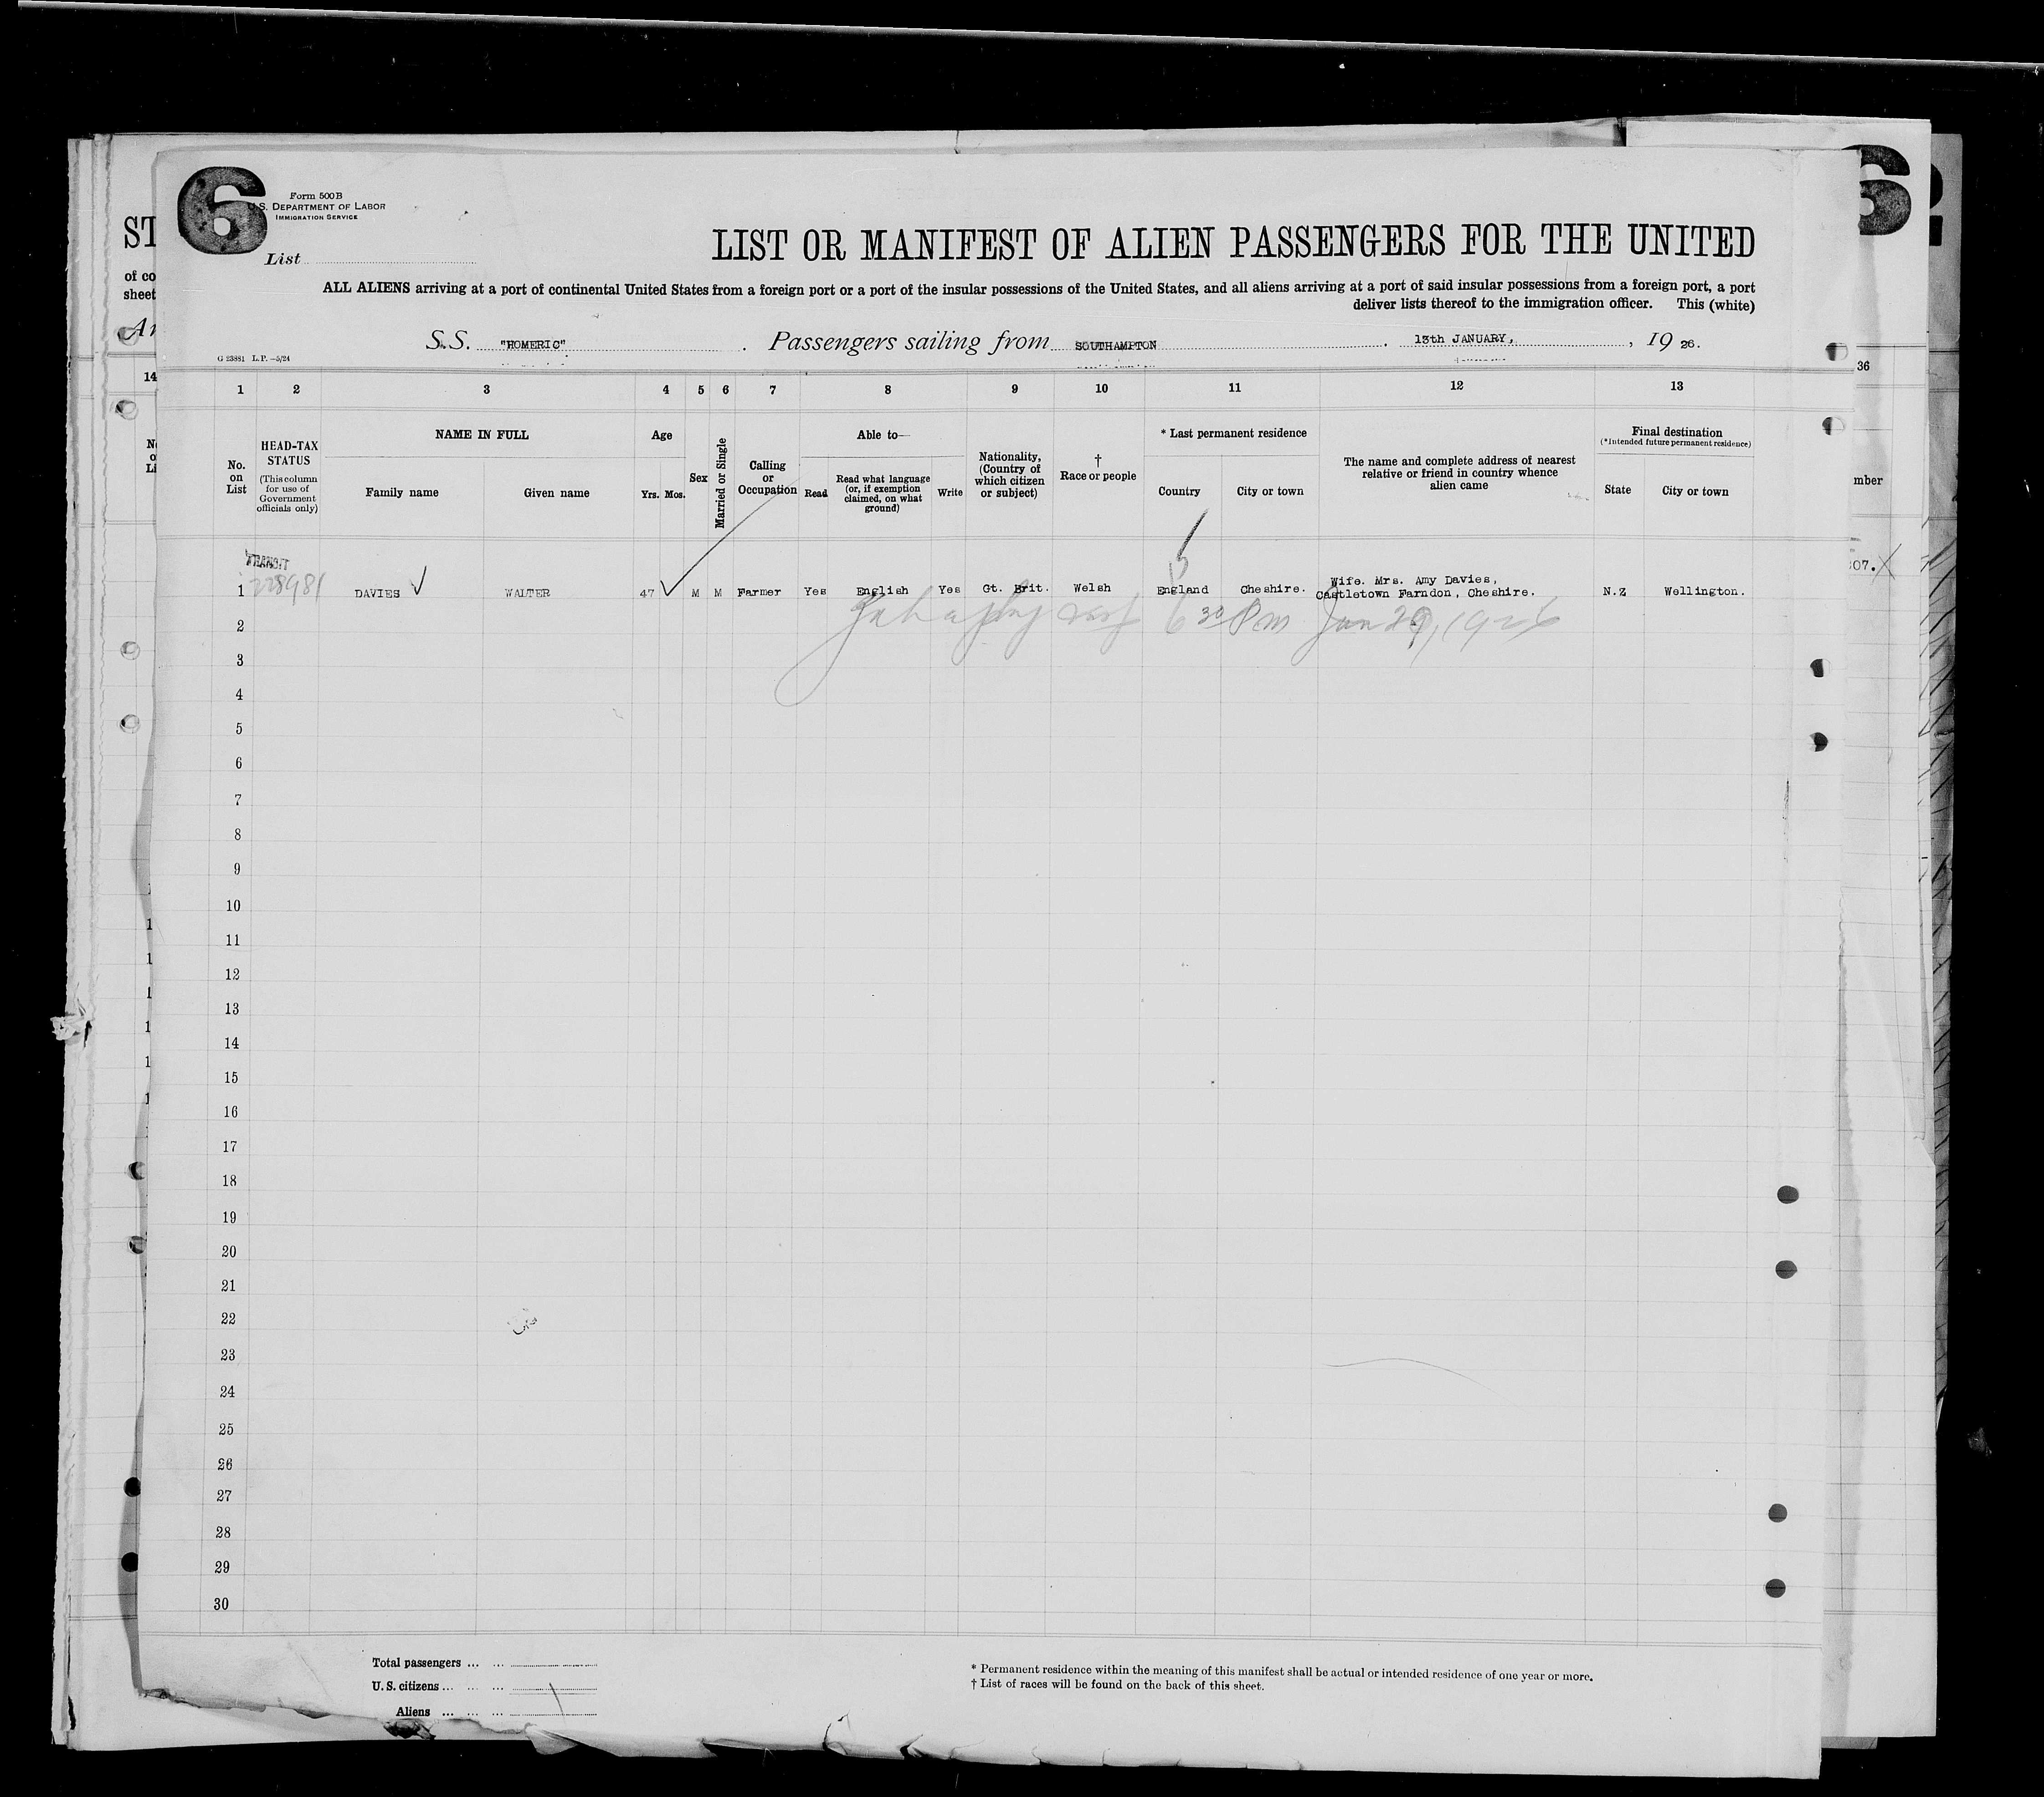 6
Form 500 B
U.S. DEPARTMENT OF LABOR
IMMIGRATION SERVICE
List
LIST OR MANIFEST OF ALIEN PASSENGERS FOR THE UNITED
ALL ALIENS arriving at a port of continental United States from a foreign port or a port of the insular possessions of the United States, and all aliens arriving at a port of said insular possessions from a foreign port, a port
deliver lists thereof to the immigration officer. This (white)
S.S. "HOMERIC" . Passengers sailing from SOUTHAMPTON . 13th JANUARY, , 19 26.
G 23881 L.P.—5/24
1 2 3 4 5 6 7 8 9 10 11 12 13
No. on List
HEAD-TAX STATUS
(This column for use of Government officials only)
NAME IN FULL
Family name
Given name
Age
Yrs. Mos.
Sex
Married or Single
Calling or Occupation
Able to—
Read
Read what language (or, if exemption claimed, on what ground)
Write
Nationality, (Country of which citizen or subject)
† Race or people
* Last permanent residence
Country
City or town
The name and complete address of nearest relative or friend in country whence alien came
Final destination
(*Intended future permanent residence)
State
City or town
TRANSIT
1 DAVIES WALTER 47 M M Farmer Yes English Yes Gt. Brit. Welsh England Cheshire. Wife. Mrs. Amy Davies, Castletown Farndon, Cheshire. N.Z Wellington.
6 30 PM Jan 29, 1926
2
3
4
5
6
7
8
9
10
11
12
13
14
15
16
17
18
19
20
21
22
23
24
25
26
27
28
29
30
Total passengers ... ...
U. S. citizens ... ... ...
Aliens ... ... ...
* Permanent residence within the meaning of this manifest shall be actual or intended residence of one year or more.
† List of races will be found on the back of this sheet.
ST
of co
sheet
14
36
mber